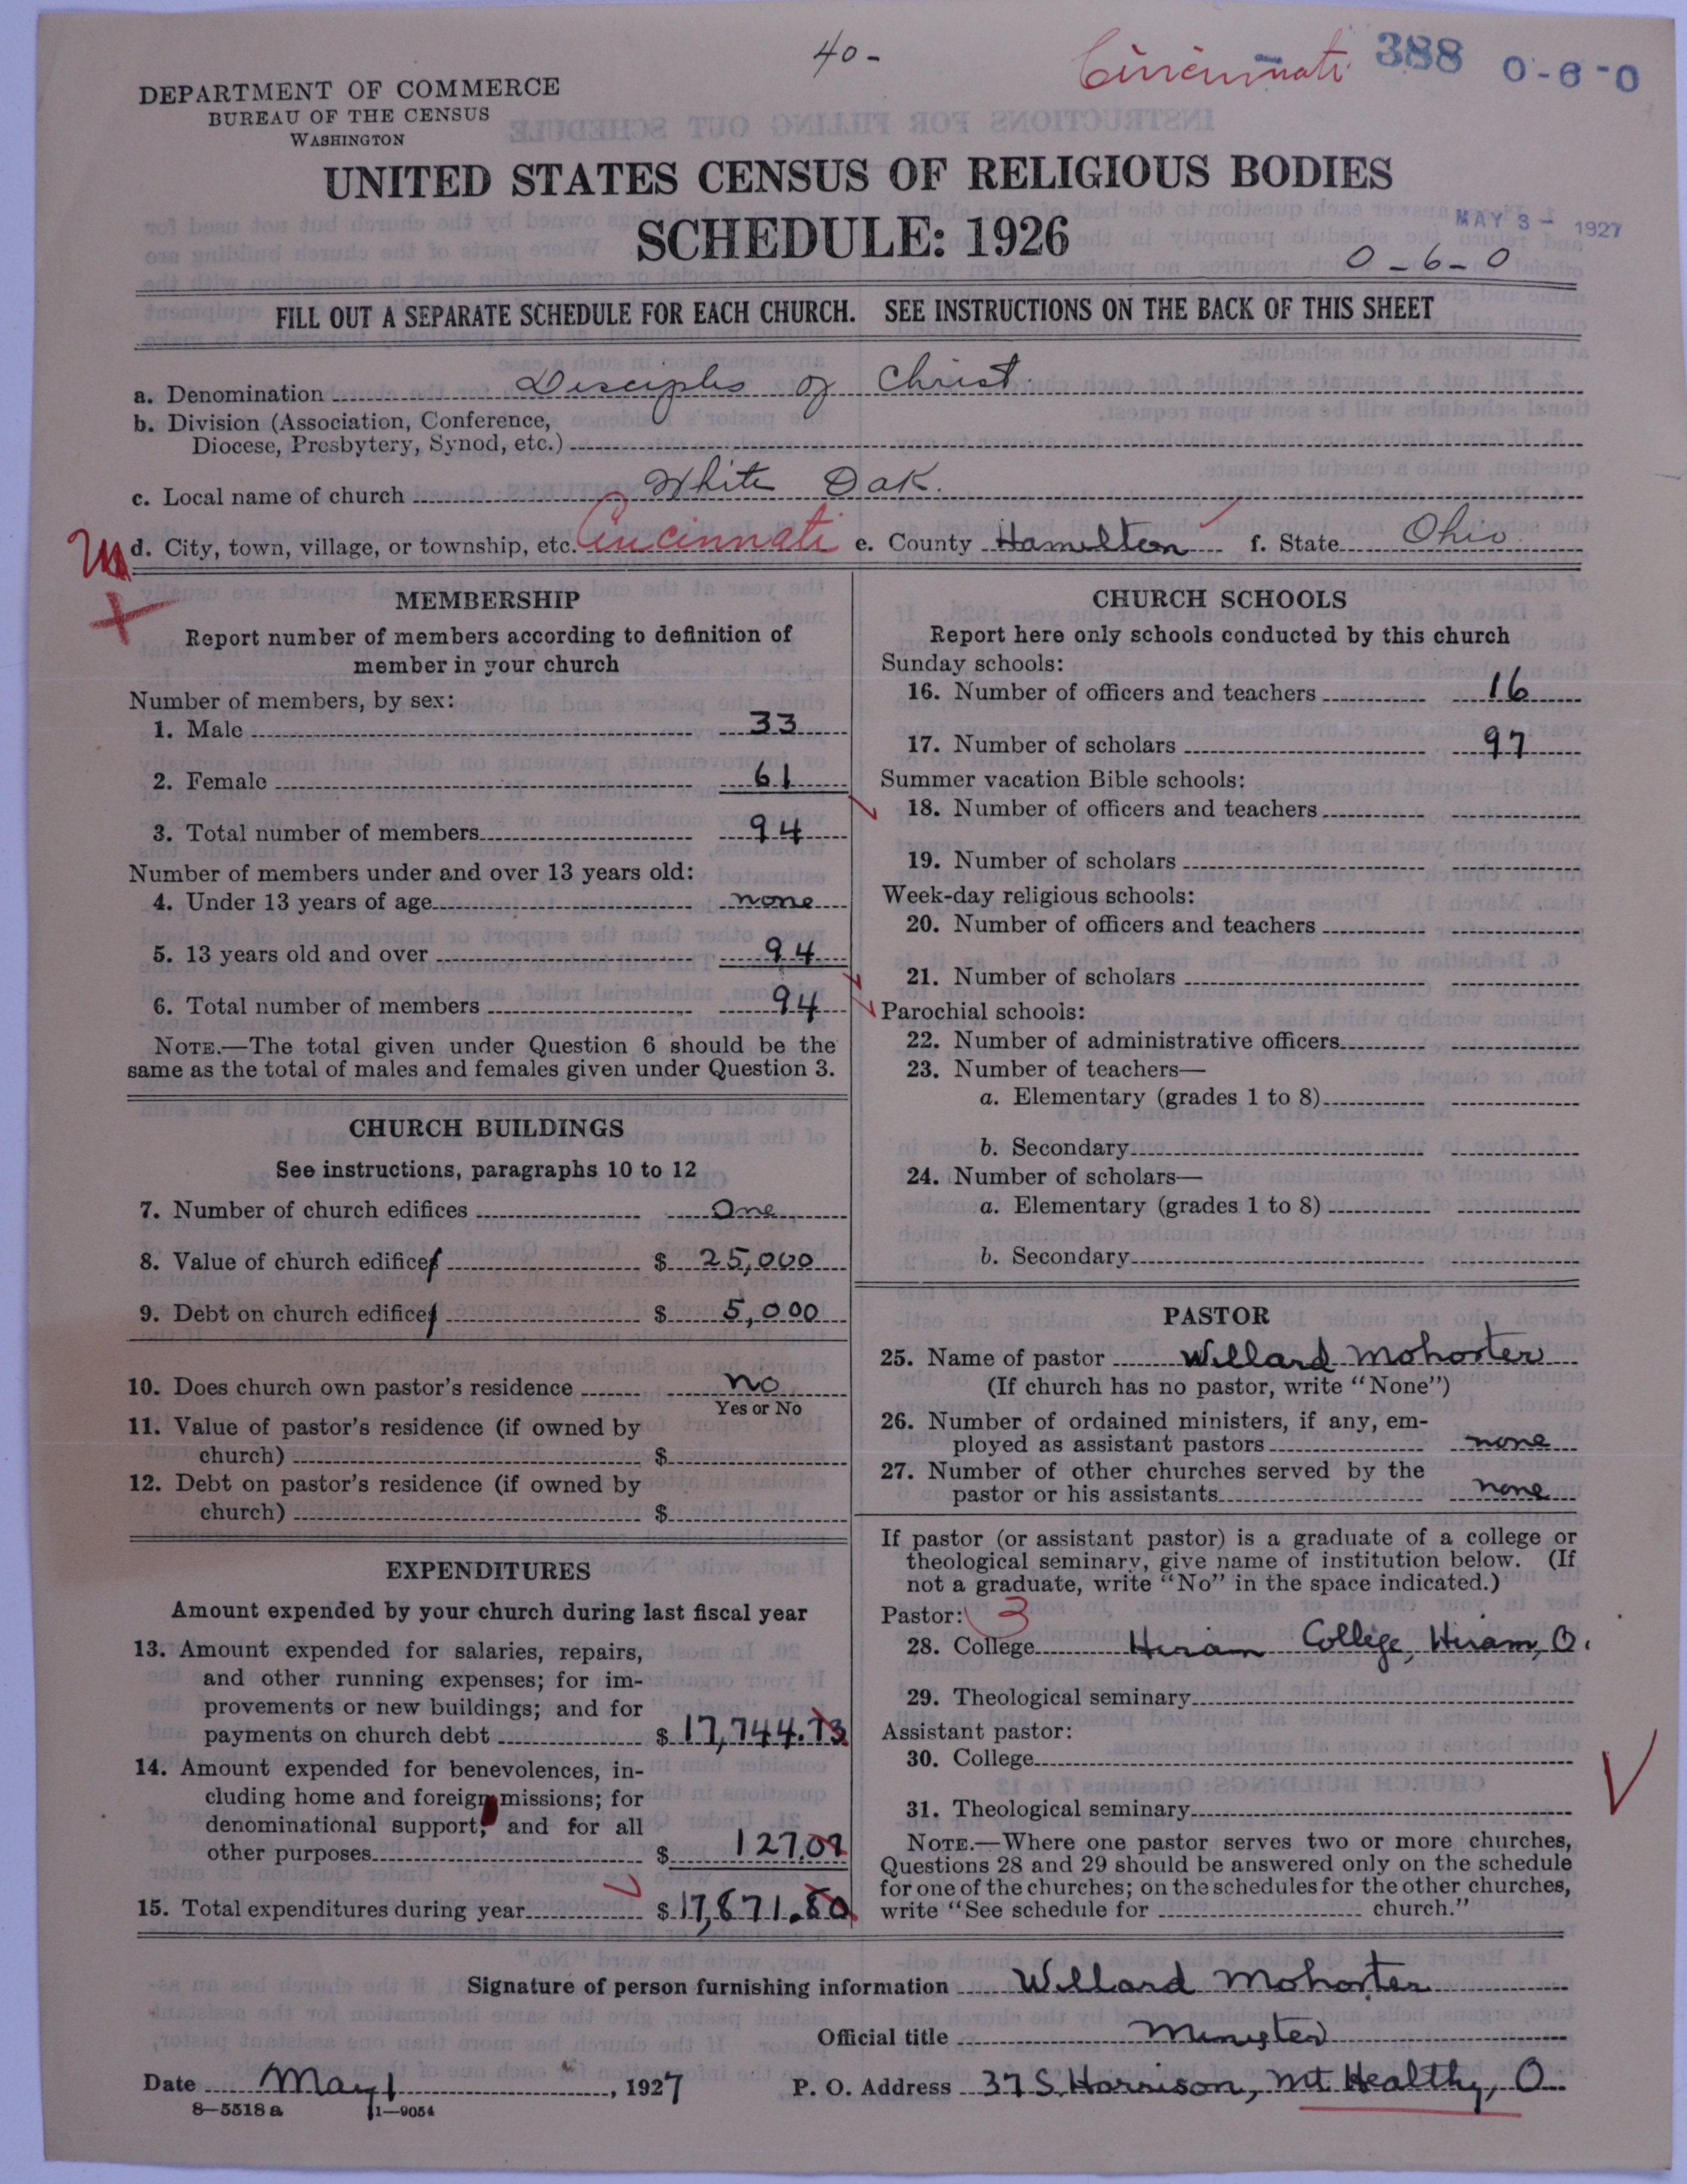 40-
Cincinnati 388 0-6-0
DEPARTMENT OF COMMERCE
BUREAU OF THE CENSUS
WASHINGTON
UNITED STATES CENSUS OF RELIGIOUS BODIES
SCHEDULE: 1926
MAY 3 - 1927
0-6-0
FILL OUT A SEPARATE SCHEDULE FOR EACH CHURCH. SEE INSTRUCTIONS ON THE BACK OF THIS SHEET
a. Denomination Disciples of Christ.
b. Division (Association, Conference,
Diocese, Presbytery, Synod, etc.)
c. Local name of church White Oak.
d. City, town, village, or township, etc. Cincinnati e. County Hamilton f. State Ohio
MEMBERSHIP
Report number of members according to definition of
member in your church
Number of members, by sex:
1. Male 33
2. Female 61
3. Total number of members 94
Number of members under and over 13 years old:
4. Under 13 years of age none
5. 13 years old and over 94
6. Total number of members 94
NOTE.—The total given under Question 6 should be the
same as the total of males and females given under Question 3.
CHURCH BUILDINGS
See instructions, paragraphs 10 to 12
7. Number of church edifices One
8. Value of church edifices $ 25,000
9. Debt on church edifices $ 5,000
10. Does church own pastor's residence no
Yes or No
11. Value of pastor's residence (if owned by
church) $
12. Debt on pastor's residence (if owned by
church) $
EXPENDITURES
Amount expended by your church during last fiscal year
13. Amount expended for salaries, repairs,
and other running expenses; for im-
provements or new buildings; and for
payments on church debt $ 17,744.73
14. Amount expended for benevolences, in-
cluding home and foreign missions; for
denominational support; and for all
other purposes $ 127.07
15. Total expenditures during year $ 17,871.80
CHURCH SCHOOLS
Report here only schools conducted by this church
Sunday schools:
16. Number of officers and teachers 16
17. Number of scholars 97
Summer vacation Bible schools:
18. Number of officers and teachers
19. Number of scholars
Week-day religious schools:
20. Number of officers and teachers
21. Number of scholars
Parochial schools:
22. Number of administrative officers
23. Number of teachers—
a. Elementary (grades 1 to 8)
b. Secondary
24. Number of scholars—
a. Elementary (grades 1 to 8)
b. Secondary
PASTOR
25. Name of pastor Willard Mohorter
(If church has no pastor, write "None")
26. Number of ordained ministers, if any, em-
ployed as assistant pastors none
27. Number of other churches served by the
pastor or his assistants none
If pastor (or assistant pastor) is a graduate of a college or
theological seminary, give name of institution below. (If
not a graduate, write "No" in the space indicated.)
Pastor: 3
28. College Hiram College, Hiram, O.
29. Theological seminary
Assistant pastor:
30. College
31. Theological seminary
NOTE.—Where one pastor serves two or more churches,
Questions 28 and 29 should be answered only on the schedule
for one of the churches; on the schedules for the other churches,
write "See schedule for church."
Signature of person furnishing information Willard Mohorter
Official title Minister
Date May 1, 1927 P. O. Address 37 S. Harrison, Mt Healthy, O.
8—5518 a 11—9054